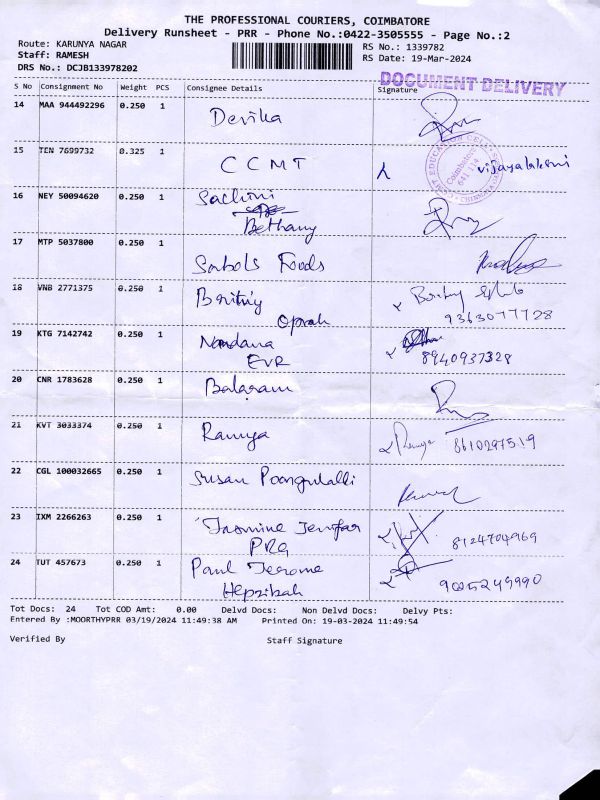 THE PROFESSIONAL COURIERS, COIMBATORE
Delivery Runsheet - PRR - Phone No.:0422-3505555 - Page No.:2
Route: KARUNYA NAGAR RS No.: 1339782
Staff: RAMESH RS Date: 19-Mar-2024
DRS No.: DCJB133978202
DOCUMENT DELIVERY
S No Consignment No Weight PCS Consignee Details Signature
14 MAA 944492296 0.250 1 Devika
15 TEN 7699732 0.325 1 CCMT Vijayalakshmi
EDUCATION CELL
Coimbatore
641 114
16 NEY 50094620 0.250 1 Sachini
Bethany
17 MTP 5037800 0.250 1 Foods
18 VNB 2771375 0.250 1
Oprah 9363077728
19 KTG 7142742 0.250 1 Nandana
EVR 8940937328
20 CNR 1783628 0.250 1 Balaram
21 KVT 3033374 0.250 1 Ramya Ramya 8610297519
22 CGL 100032665 0.250 1 Susan Poongulalli
23 IXM 2266263 0.250 1 Jasmine Jenifar
PRG 8124704969
24 TUT 457673 0.250 1 Paul Jerome
Hepzibah 9025249990
Tot Docs: 24 Tot COD Amt: 0.00 Delvd Docs: Non Delvd Docs: Delvy Pts:
Entered By :MOORTHYPRR 03/19/2024 11:49:38 AM Printed On: 19-03-2024 11:49:54
Verified By Staff Signature